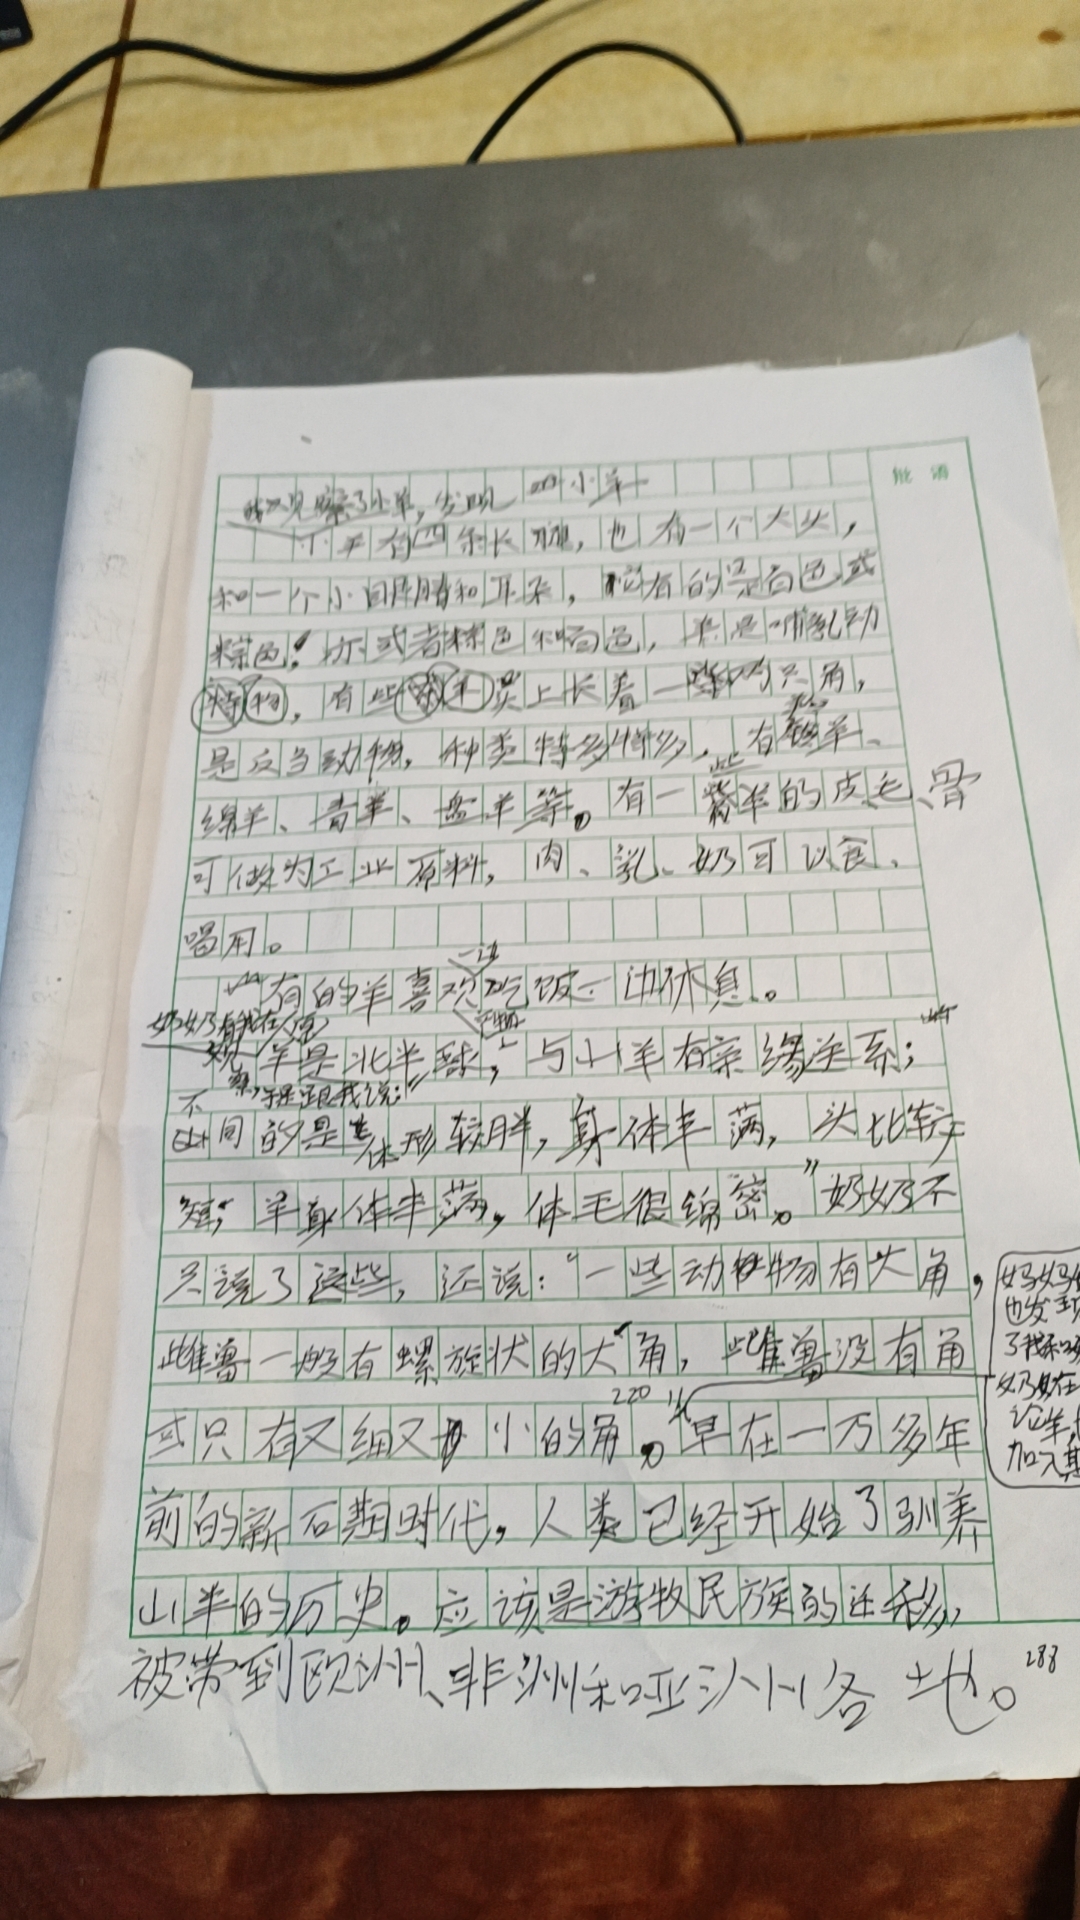 批语
小羊
我观察了小羊，发现
小羊有四条长腿，也有一个大头，
和一个小眼睛和耳朵，它有的是白色或
棕色，或者棕色和白色，羊是哺乳动
物，有些羊头上长着一两只角，
是反刍动物，种类特多特多，有
绵羊、青羊、盘羊等。有一些羊的皮毛、骨
可做为工业原料，肉、乳、奶可以食、
喝用。
有的羊喜欢一边吃饭一边休息。
奶奶看我在
观察，于是跟我说：“
羊是北半球产物，与山羊有亲缘关系；
不同的是体形较胖，身体丰满，头比较
短；羊身体丰满，体毛很绵密。”奶奶不
只说了这些，还说：“一些动物有大角，
雌兽一般有螺旋状的大角，雌兽没有角
或只有又细又小的角。”早在一万多年
220
前的新石期时代，人类已经开始了驯养
山羊的历史。应该是游牧民族的迁移，
被带到欧洲、非洲和亚洲各地。
288
妈妈
也发现
了我和
奶奶在
论羊，
加入其